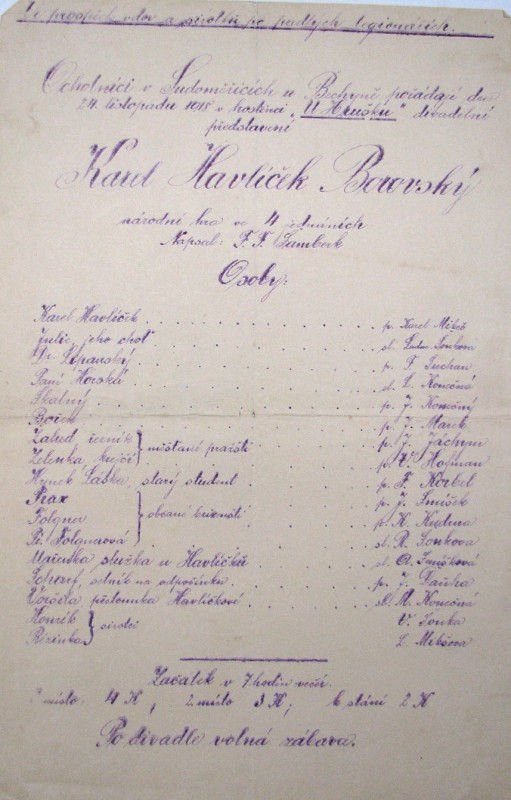 Ve prospěch vdov a sirotků po padlých legionářích.
Ochotníci v Sudoměřicích u Bechyně pořádají dne
24. listopadu 1918 v hostinci „U Hrušků" divadelní
představení
Karel Havlíček Borovský
národní hra ve 4 jednáních
Napsal: F. F. Šamberk
Osoby:
Karel Havlíček p. Karel Mikeš
Julie, jeho choť sl. Sonkova
Dr. p. Suchan
Paní Horská sl. L. Konečná
Skalný p. J. Konečný
Bořek p. J. Marek
Žalud, řezník } měšťané pražští p. J. Jáchim
Zelenka, krejčí p. V. Hofman
Hynek Láska, starý student p. F. Korbel
Prax } občané brixenští p. J. Smíšek
Folgner p. K. Kudrna
Pí. Folgnerová sl. R. Sonkova
Mařenka služka u Havlíčků sl. A. Smíšková
setník na odpočinku p. J. Daňha
Voršila pěstounka Havlíčkové sl. M. Konečná
Honzík } sirotci V. Sonka
Rézinka L. Mikšova
Začátek v 7 hodin večer.
místo 4 K, 2. místo 3 K; k stání 2 K
Po divadle volná zábava.